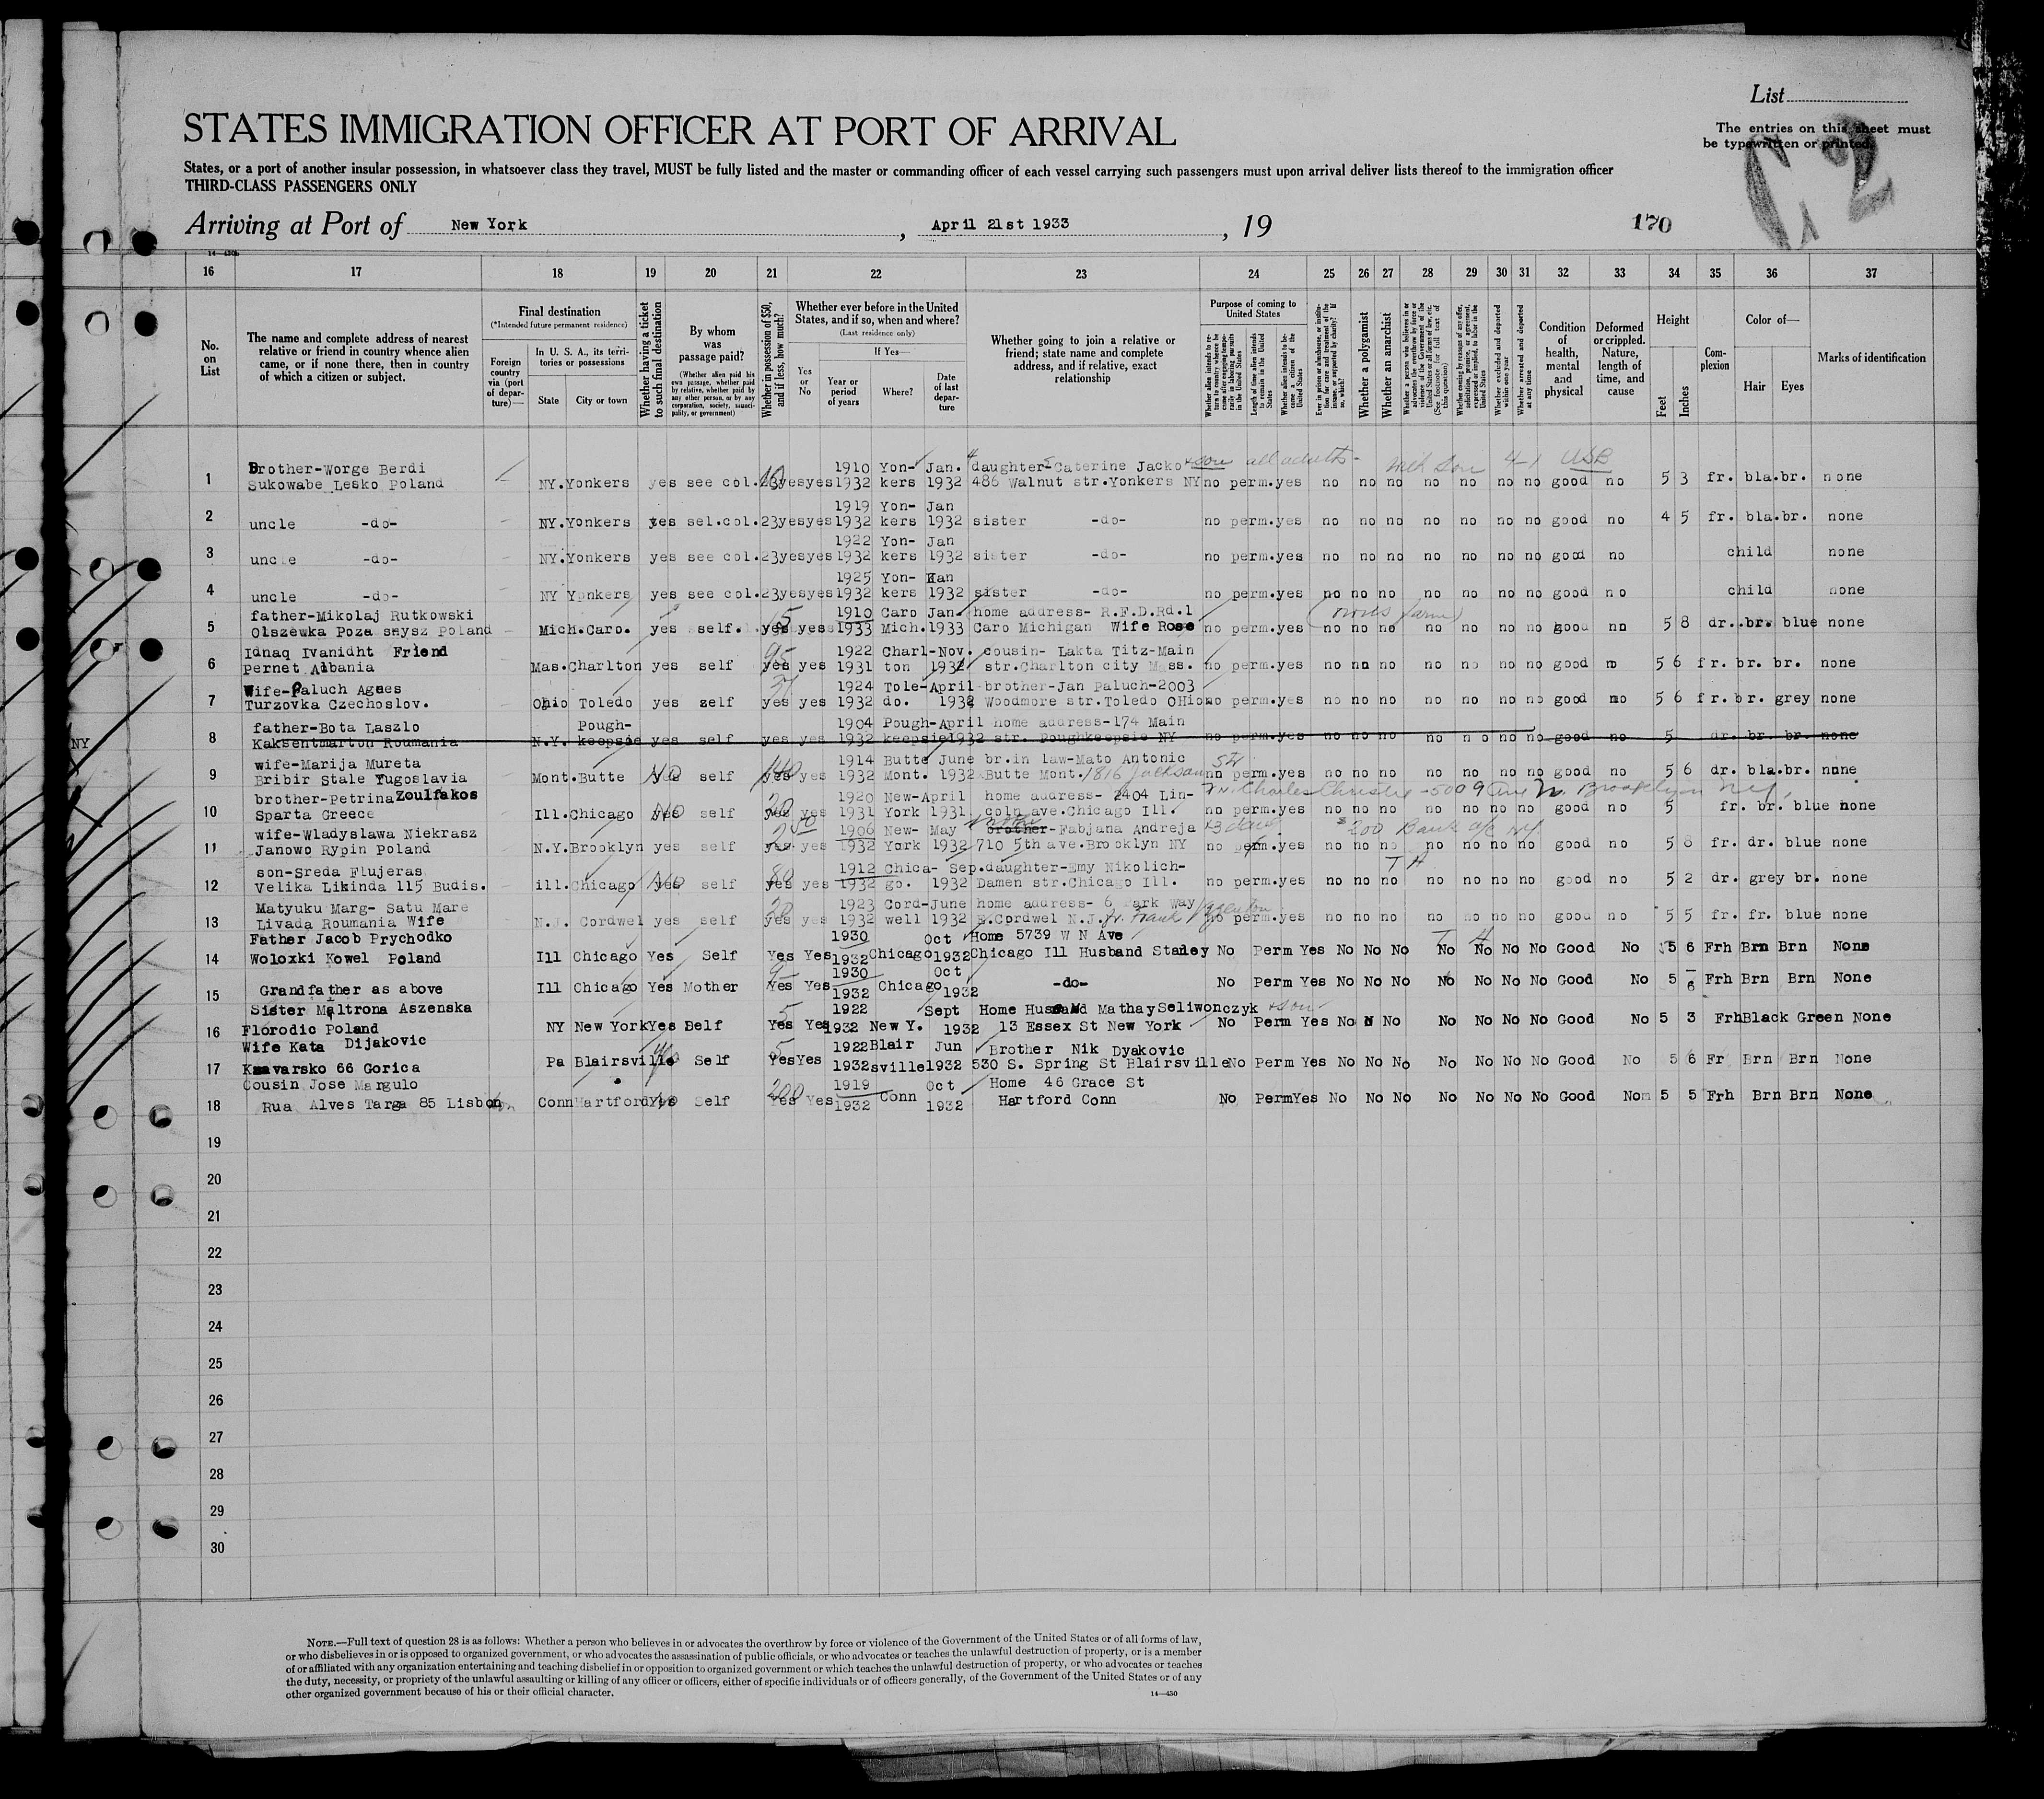 List
The entries on this sheet must
be typewritten or printed.
C 2
STATES IMMIGRATION OFFICER AT PORT OF ARRIVAL
States, or a port of another insular possession, in whatsoever class they travel, MUST be fully listed and the master or commanding officer of each vessel carrying such passengers must upon arrival deliver lists thereof to the immigration officer
THIRD-CLASS PASSENGERS ONLY
Arriving at Port of New York, April 21st 1933, 19 170
14—430b
16 17 18 19 20 21 22 23 24 25 26 27 28 29 30 31 32 33 34 35 36 37
No. on List
The name and complete address of nearest relative or friend in country whence alien came, or if none there, then in country of which a citizen or subject.
Final destination
(*Intended future permanent residence)
Foreign country via (port of departure)—
In U. S. A., its territories or possessions
State City or town
Whether having a ticket to such final destination
By whom was passage paid?
(Whether alien paid his own passage, whether paid by relative, whether paid by any other person, or by any corporation, society, municipality, or government)
Whether in possession of $50, and if less, how much?
Whether ever before in the United States, and if so, when and where?
(Last residence only)
Yes or No
If Yes—
Year or period of years Where? Date of last departure
Whether going to join a relative or friend; state name and complete address, and if relative, exact relationship
Purpose of coming to United States
Whether alien intends to return to country whence he came after engaging temporarily in laboring pursuits in the United States
Length of time alien intends to remain in the United States
Whether alien intends to become a citizen of the United States
Ever in prison or almshouse, or institution for care and treatment of the insane, or supported by charity? If so, which?
Whether a polygamist
Whether an anarchist
Whether a person who believes in or advocates the overthrow by force or violence of the Government of the United States or all forms of law, etc. (See footnote for full text of this question)
Whether coming by reason of any offer, solicitation, promise, or agreement, expressed or implied, to labor in the United States
Whether excluded and deported within one year
Whether arrested and deported at any time
Condition of health, mental and physical
Deformed or crippled. Nature, length of time, and cause
Height
Feet Inches
Complexion
Color of—
Hair Eyes
Marks of identification
Brother-Worge Berdi 1910 Yon- Jan. daughter-Caterine Jacko +son all adults - with son 4-1 USB
1 Sukowabe Lesko Poland NY. Yonkers yes see col. yes yes 1932 kers 1932 486 Walnut str. Yonkers NY no perm. yes no no no no no no no good no 5 3 fr. bla. br. none
1919 Yon- Jan
2 uncle -do- NY. Yonkers yes sel.col.23 yes yes 1932 kers 1932 sister -do- no perm. yes no no no no no no no good no 4 5 fr. bla. br. none
1922 Yon- Jan
3 uncle -do- NY. Yonkers yes see col.23 yes yes 1932 kers 1932 sister -do- no perm. yes no no no no no no no good no child none
1925 Yon- Kan
4 uncle -do- NY Yonkers yes see col.23 yes yes 1932 kers 1932 sister -do- no perm. yes no no no no no no no good no child none
father-Mikolaj Rutkowski 5 1910 Caro Jan. home address- R.F.D.Rd.1 (owns farm)
5 Olszewka Poza snysz Poland Mich. Caro. yes self. yes yes 1933 Mich. 1933 Caro Michigan Wife Rose no perm. yes no no no no no no no good no 5 8 dr. br. blue none
Idnaq Ivanidht Friend 95 1922 Charl- Nov. cousin- Lakta Titz-Main
6 Pernet Albania Mas. Charlton yes self yes yes 1931 ton 1932 str. Charlton city Mass. no perm. yes no no no no no no no good no 5 6 fr. br. br. none
Wife-Paluch Agnes 1924 Tole- April brother-Jan Paluch-2003
7 Turzovka Czechoslov. Ohio Toledo yes self yes yes 1932 do. 1932 Woodmore str. Toledo OHio no perm. yes no no no no no no no good no 5 6 fr. br. grey none
father-Bota Laszlo Pough- 1904 Pough- April home address-174 Main
NY 8 Kaksentmarton Roumania N.Y. keepsie yes self yes yes 1932 keepsie 1932 str. Poughkeepsie NY no perm. yes no no no no no no no good no 5 dr. br. br. none
wife-Marija Mureta 1914 Butte June br.in law-Mato Antonic St
9 Bribir Stale Yugoslavia Mont. Butte No self yes yes 1932 Mont. 1932 Butte Mont. 1816 Jackson no perm. yes no no no no no no no good no 5 6 dr. bla. br. none
brother-Petrina Zoulfakos 20 1920 New- April home address- 2404 Lin- Charles Christie - 5009 Ave N. Brooklyn N.Y.
10 Sparta Greece Ill. Chicago No self yes yes 1931 York 1931 coln ave. Chicago Ill. no perm. yes no no no no no no no good no 5 fr. br. blue none
wife-Wladyslawa Niekrasz 1906 New- May brother-Fabjana Andreja $200 Bank a/c NY
11 Janowo Rypin Poland N.Y. Brooklyn yes self yes yes 1932 York 1932 710 5th ave. Brooklyn NY no perm. yes no no no no no no no good no 5 8 fr. dr. blue none
son-Sreda Flujeras 80 1912 Chica- Sep. daughter-Emy Nikolich- T H
12 Velika Likinda 115 Budis. ill. Chicago No self yes yes 1932 go. 1932 Damen str. Chicago Ill. no perm. yes no no no no no no no good no 5 2 dr. grey br. none
Matyuku Marg- Satu Mare 20 1923 Cord- June home address- 6 Park Way
13 Livada Roumania Wife N.J. Cordwel yes self yes yes 1932 well 1932 E. Cordwel N.J. fr. Frank no perm. yes no no no no no no no good no 5 5 fr. fr. blue none
Father Jacob Prychodko 1930 Oct Home 5739 W N Ave T H
14 Woloxki Kowel Poland Ill Chicago Yes Self Yes Yes 1932 Chicago 1932 Chicago Ill Husband Stanley No Perm Yes No No No No No No No Good No 5 6 Frh Brn Brn None
1930 Oct
15 Grandfather as above Ill Chicago Yes Mother Yes Yes 1932 Chicago 1932 -do- No Perm Yes No No No No No No No Good No 5 6 Frh Brn Brn None
Sister Maltrona Aszenska 5 1922 Sept Home Husband Mathay Seliwonczyk +son
16 Florodic Poland NY New York Yes Delf Yes Yes 1932 New Y. 1932 13 Essex St New York No Perm Yes No No No No No No Good No 5 3 Frh Black Green None
Wife Kata Dijakovic 5 1922 Blair Jun Brother Nik Dyakovic
17 Kaavarsko 66 Gorica Pa Blairsville No Self Yes Yes 1932 sville 1932 530 S. Spring St Blairsville No Perm Yes No No No No No No No Good No 5 6 Fr Brn Brn None
Cousin Jose Margulo 200 1919 Oct Home 46 Grace St
18 Rua Alves Targa 85 Lisbon Conn Hartford No Self Yes Yes 1932 Conn 1932 Hartford Conn No Perm Yes No No No No No No No Good No 5 5 Frh Brn Brn None
19
20
21
22
23
24
25
26
27
28
29
30
NOTE.—Full text of question 28 is as follows: Whether a person who believes in or advocates the overthrow by force or violence of the Government of the United States or of all forms of law,
or who disbelieves in or is opposed to organized government, or who advocates the assassination of public officials, or who advocates or teaches the unlawful destruction of property, or is a member
of or affiliated with any organization entertaining and teaching disbelief in or opposition to organized government or which teaches the unlawful destruction of property, or who advocates or teaches
the duty, necessity, or propriety of the unlawful assaulting or killing of any officer or officers, either of specific individuals or of officers generally, of the Government of the United States or of any
other organized government because of his or their official character.
14—430